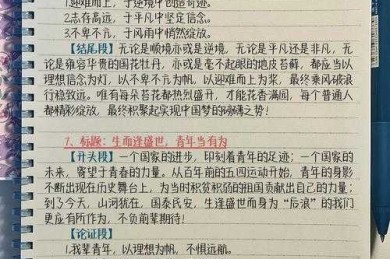 1.迎难而上，于逆境中创造奇迹。
2.志存高远，于平凡中坚定信念。
3.不卑不亢，于风雨中悄然绽放。
【结尾段】无论是顺境亦或是逆境，无论是平凡还是非凡，无
论是雍容华贵的国花牡丹，亦或是毫不起眼的地皮苔藓，都应当以
理想信念为灯，以不卑不亢为帆，以迎难而上为桨，最终乘风破浪
行稳致远。唯有每朵苔花都热烈盛开，才能花香满园，每个普通人
都精彩绽放，最终积聚起实现中国梦的磅礴之势！
7、标题：生而逢盛世，青年当有为
【开头段】一个国家的进步，印刻着青年的足迹；一个国家的
未来，寄望于青春的力量。从百年前的五四运动开始，青年的身影
不断出现在历史舞台上，为当时积贫积弱的祖国贡献出自己的力量；
到了今天，山河犹在，国泰民安，生逢盛世而身为“后浪”的我们
更应有所作为，不负前辈期待！
【论证段】
1.我辈青年，以理想为帆，不惧远航。